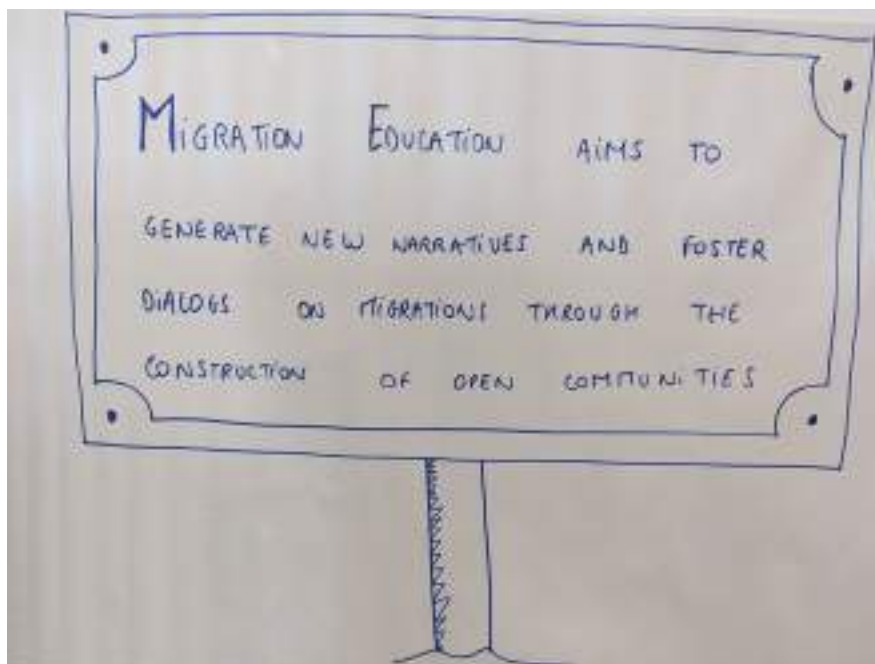 MIGRATION EDUCATION AIMS TO
GENERATE NEW NARRATIVES AND FOSTER
DIALOGS ON MIGRATIONS THROUGH THE
CONSTRUCTION OF OPEN COMMUNITIES